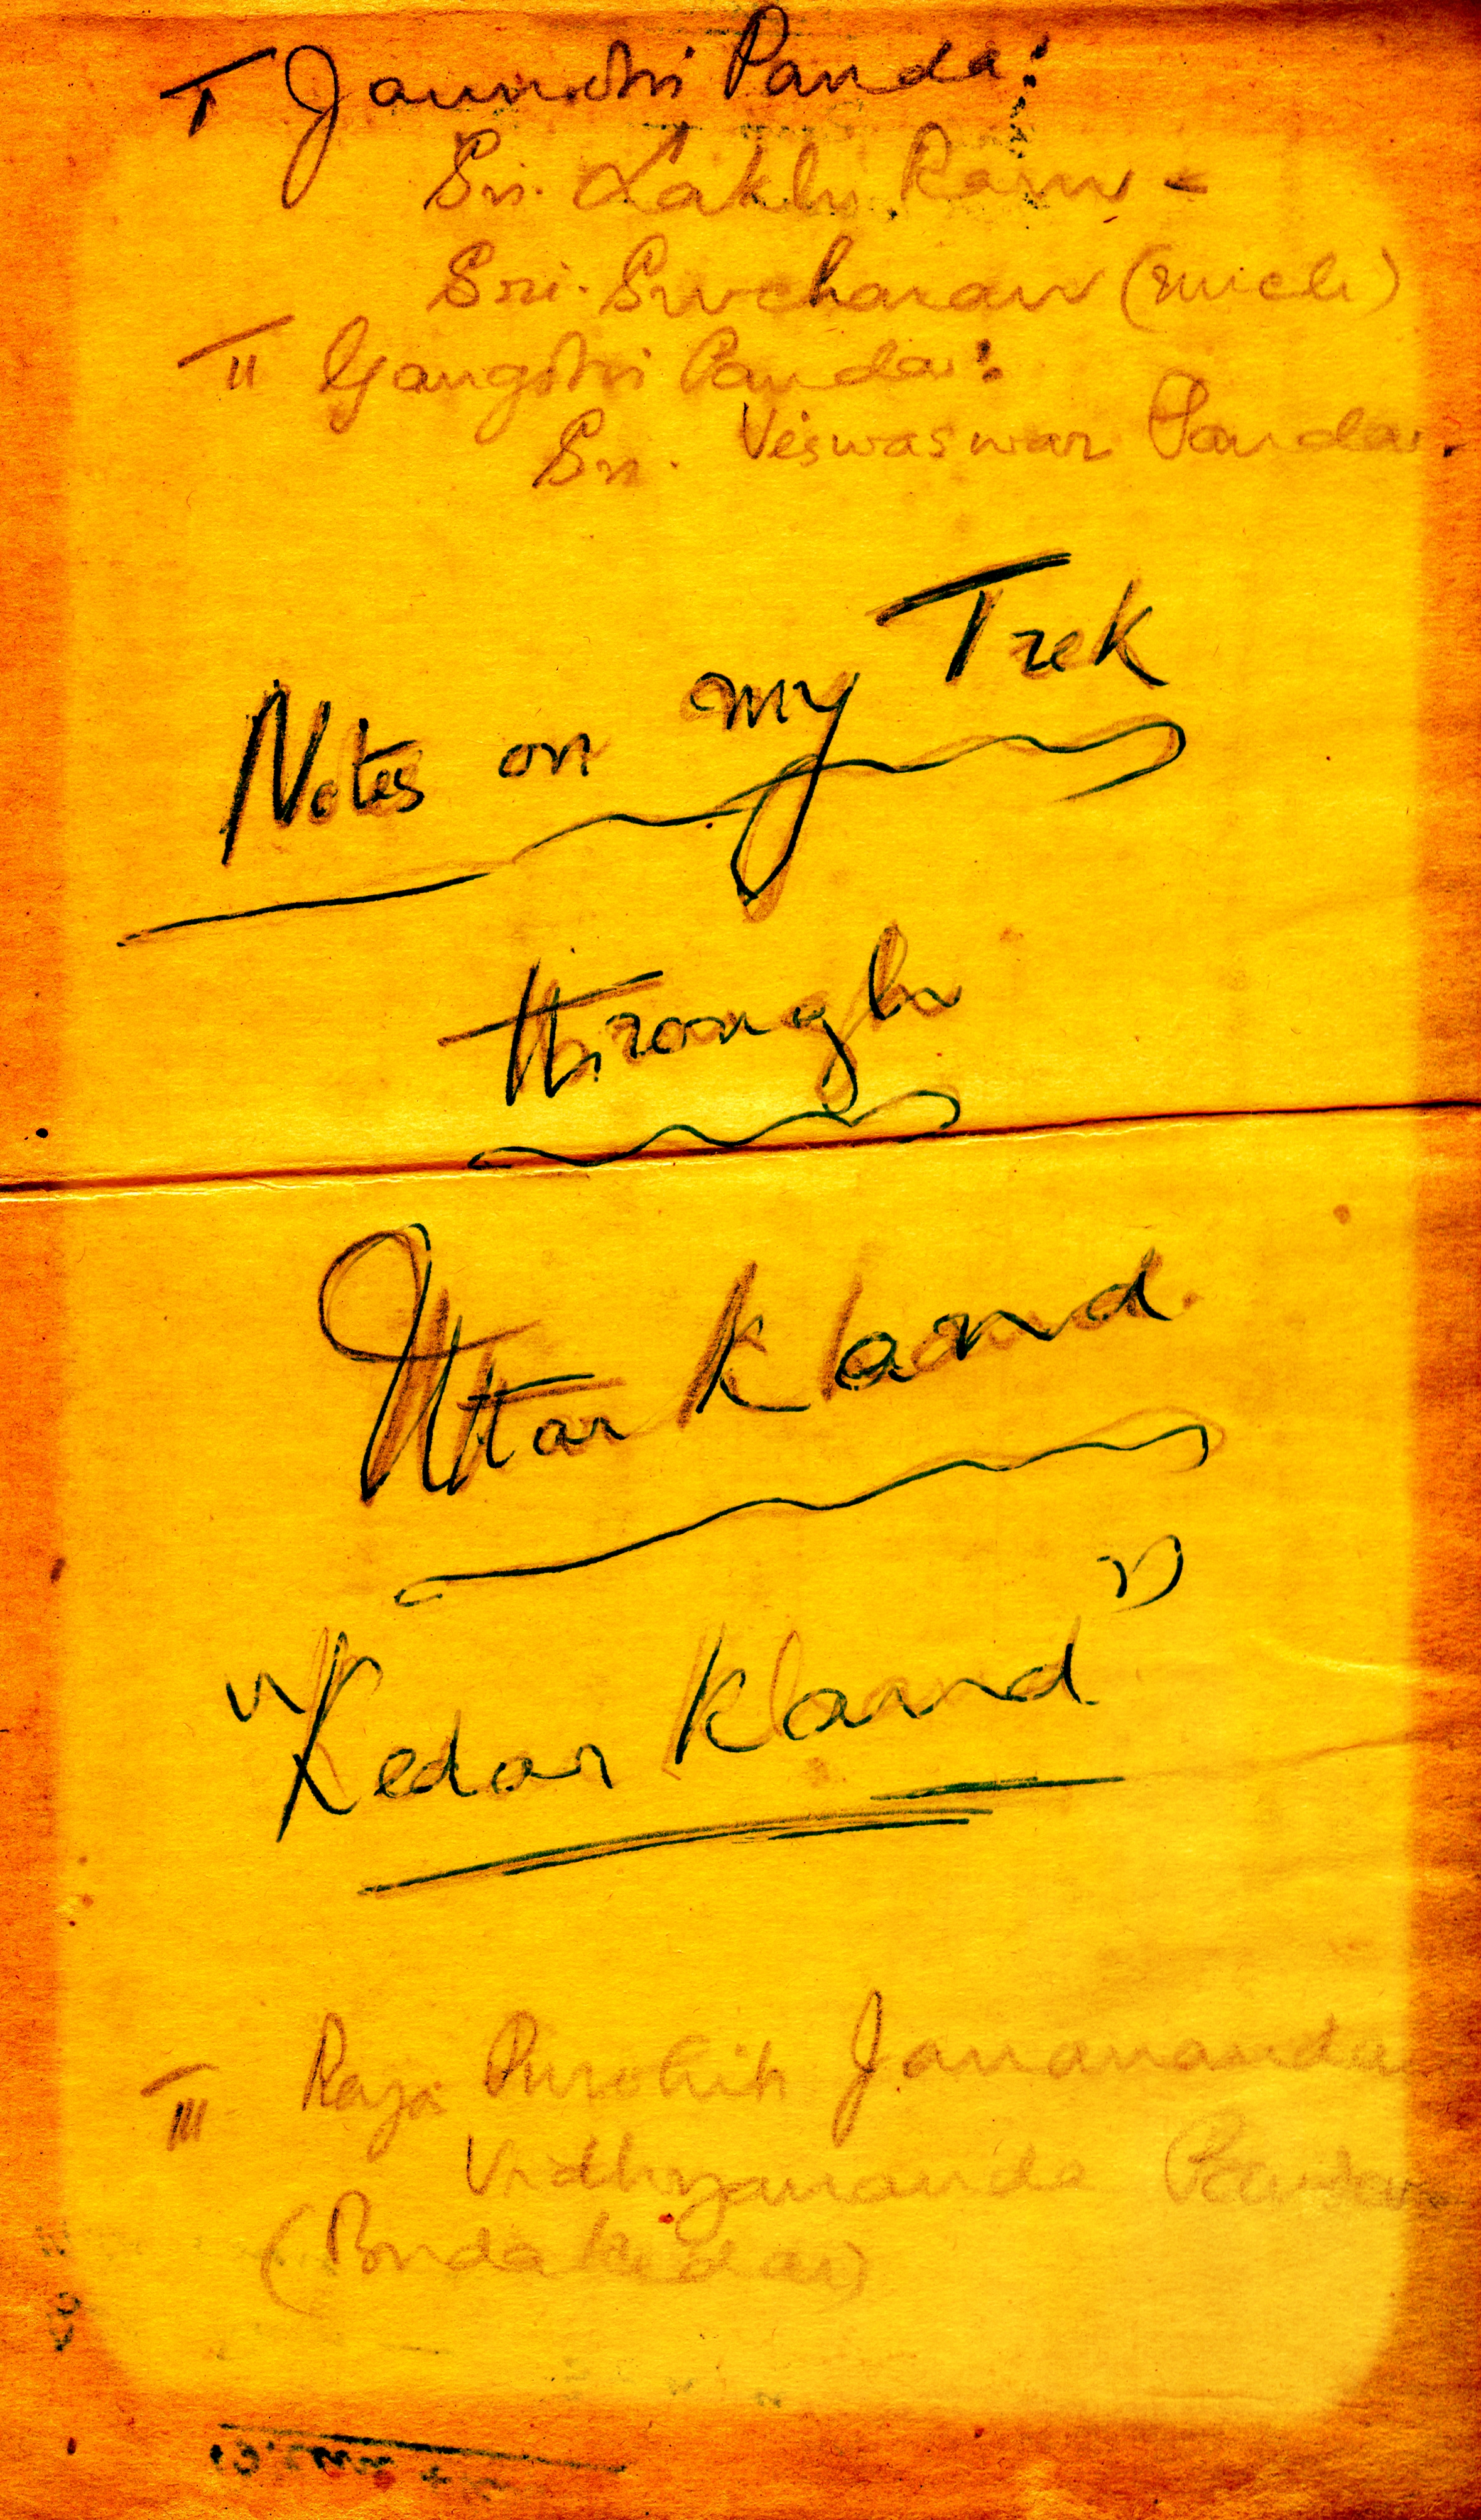 I Jamnotri Panda:
Sri. Lakhi Ram -
Sri. Sivcharan
II Gangotri Panda:
Sri. Veiswaswar Panda.
Notes on my Trek
through
Uttar Khand.
"Kedar Khand"
III Raja Purohit Jananananda
Vidhyananda Panda
(Buda Kedar)